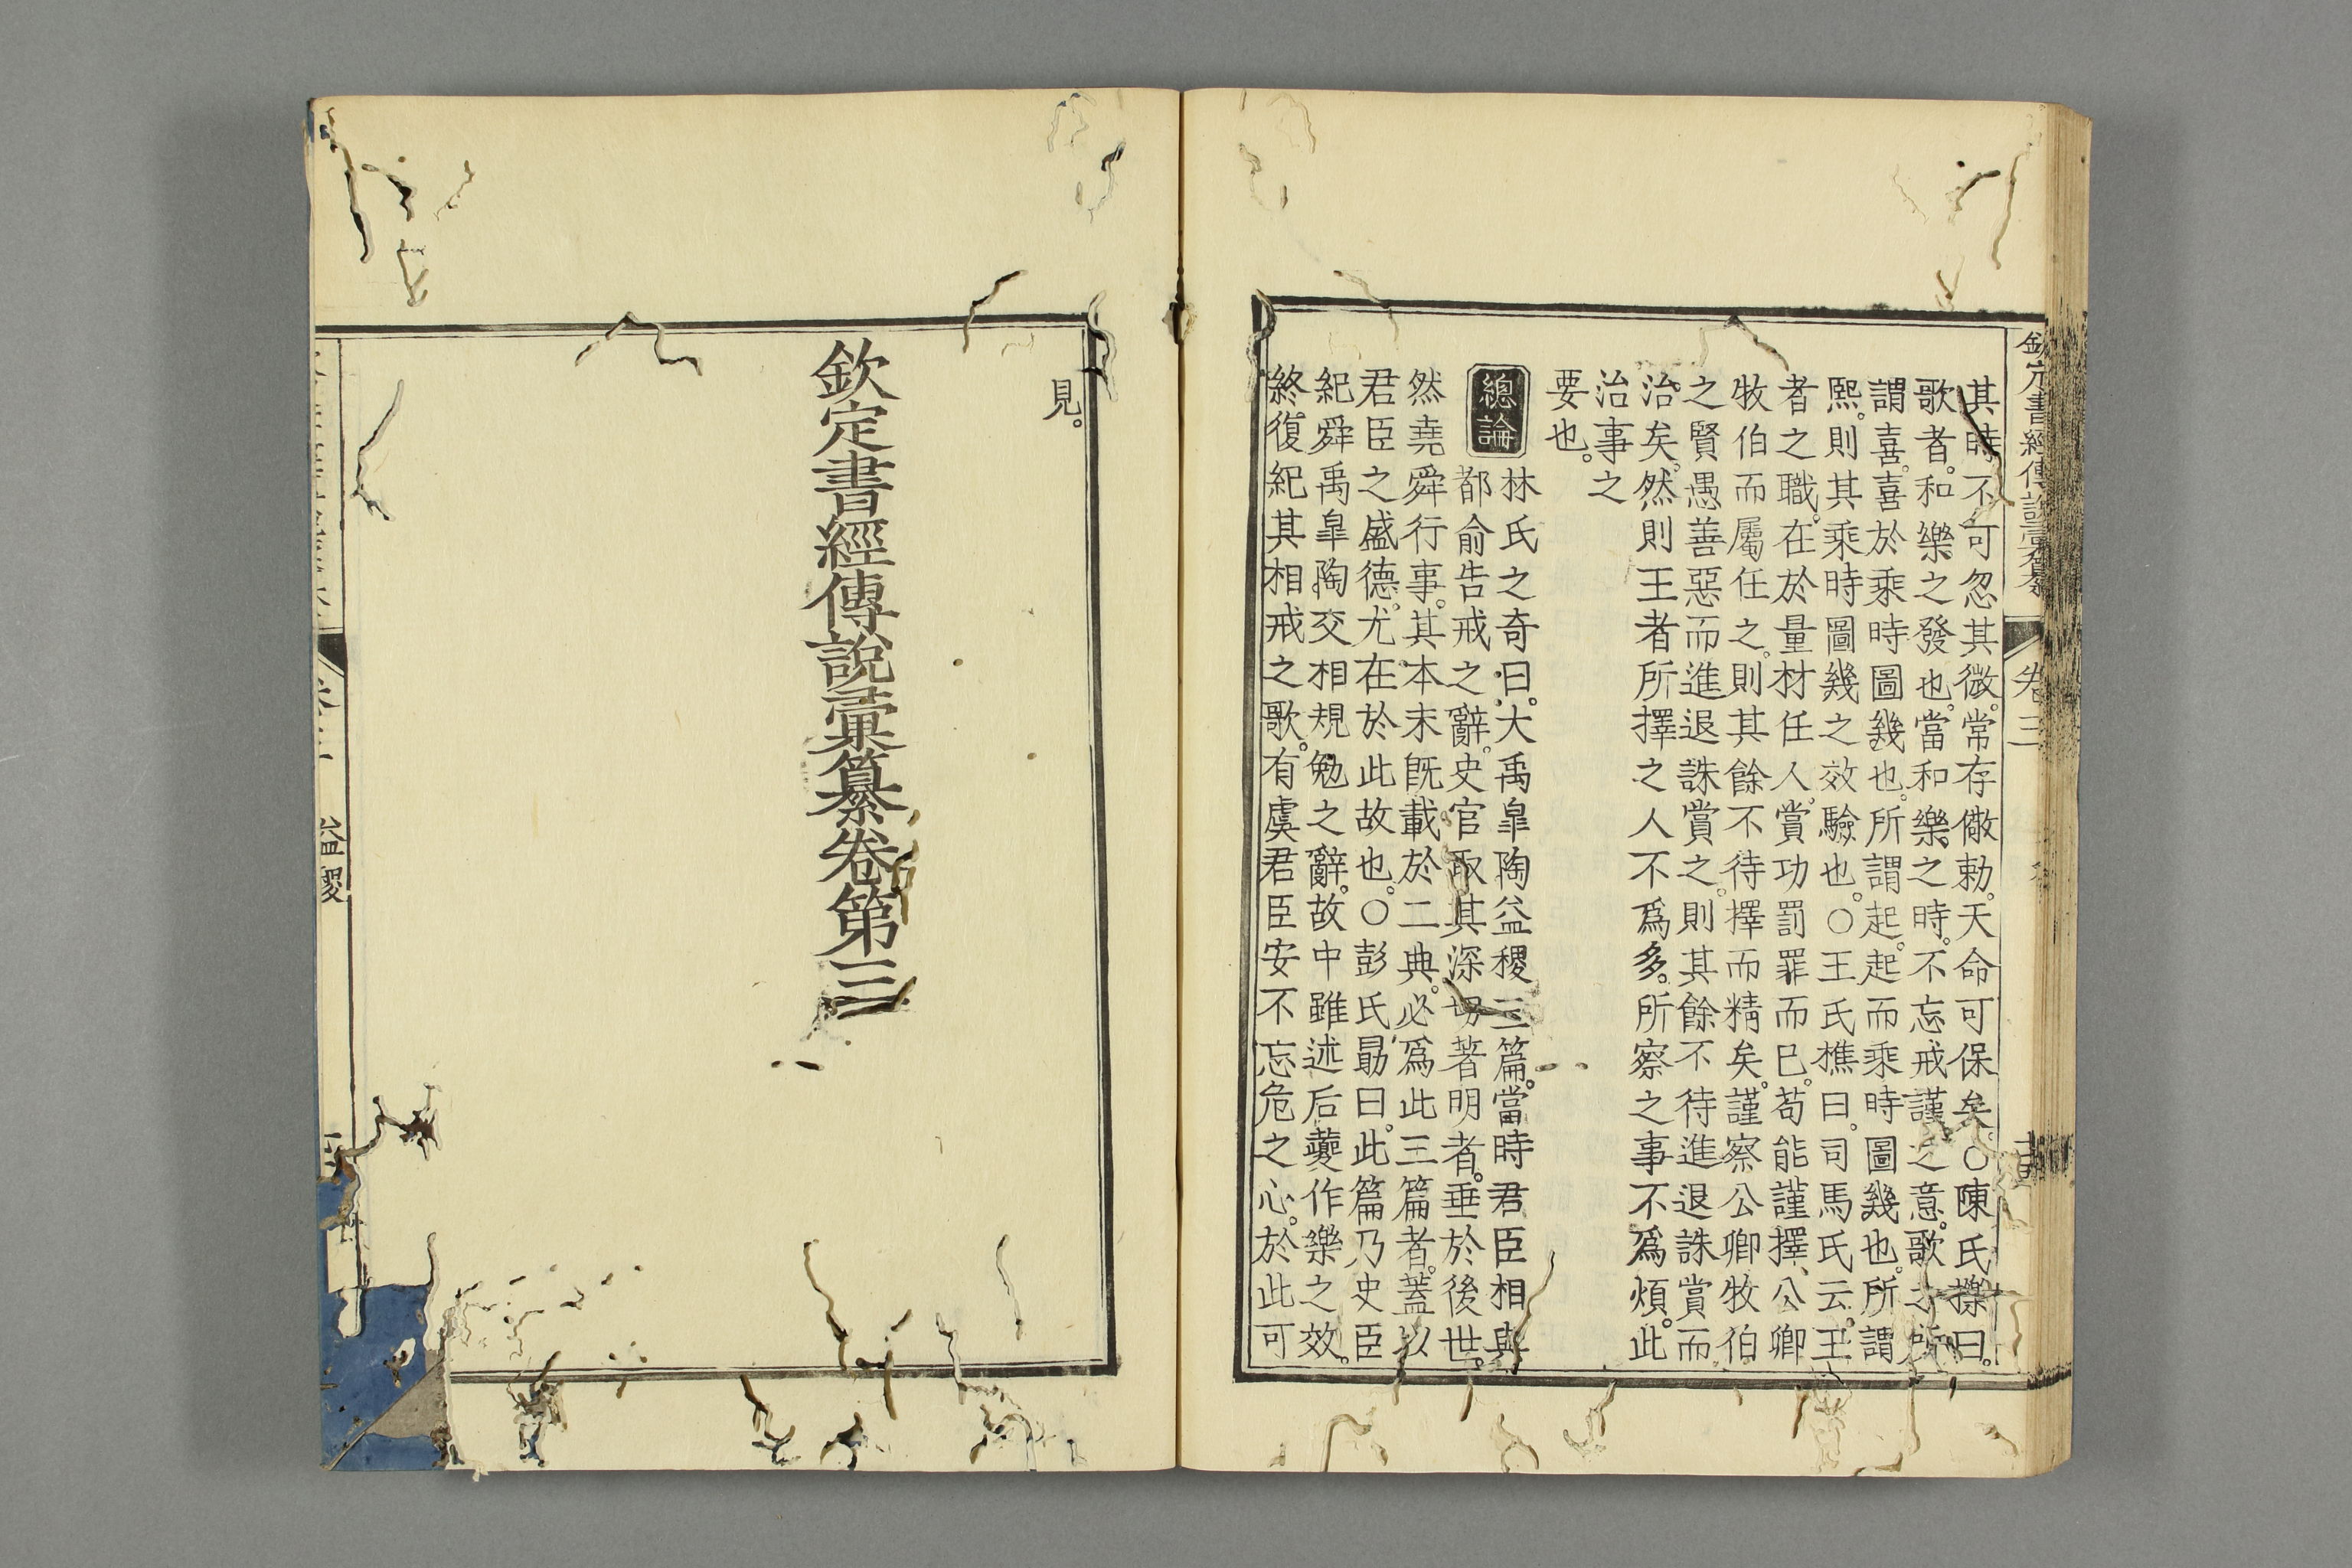 欽定書經傳說彙纂
卷三
其時不可忽其微。常存儆勅。天命可保矣。○陳氏櫟曰。
歌者。和樂之發也。當和樂之時。不忘戒謹之意。歌之所
謂喜。喜於乘時圖幾也。所謂起。起而乘時圖幾也。所謂
熙。則其乘時圖幾之效驗也。○王氏樵曰。司馬氏云。王
者之職。在於量材任人。賞功罰罪而已。苟能謹擇公卿
牧伯而屬任之。則其餘不待擇而精矣。謹察公卿牧伯
之賢愚善惡而進退誅賞之。則其餘不待進退誅賞而
治矣。然則王者所擇之人不爲多。所察之事不爲煩。此
治事之
要也。
總論
林氏之奇曰。大禹皐陶益稷三篇。當時君臣相與
都俞告戒之辭。史官取其深切著明者。垂於後世。
然堯舜行事。其本末旣載於二典。必爲此三篇者。蓋以
君臣之盛德。尤在於此故也。○彭氏勗曰。此篇乃史臣
紀舜禹皐陶交相規勉之辭。故中雖述后夔作樂之效。
終復紀其相戒之歌。有虞君臣安不忘危之心。於此可
見。
欽定書經傳說彙纂卷第三
益稷